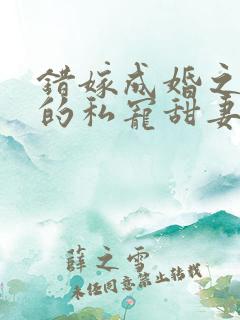 错嫁成婚之
的私宠甜妻
薛之雪
未经同意禁止转载